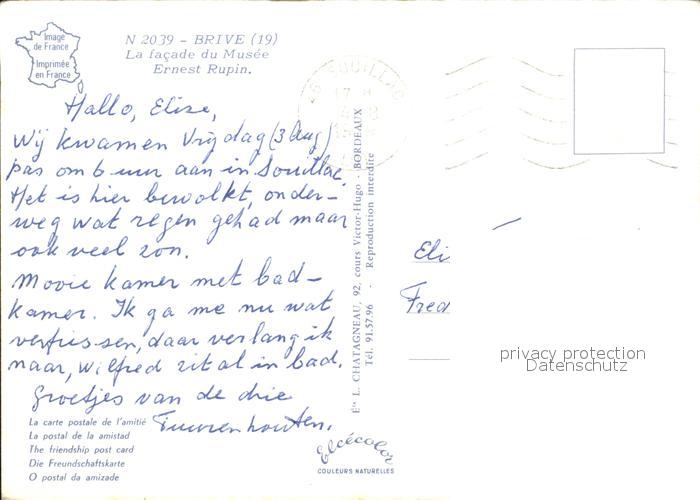 Image
de France
Imprimée
en France
N 2039 - BRIVE (19)
La façade du Musée
Ernest Rupin.
Hallo, Elise,
Wij kwamen Vrijdag (3 Aug)
pas om 6 uur aan in Souillac
Het is hier bewolkt, onder-
weg wat regen gehad maar
ook veel zon.
Mooie kamer met bad-
kamer. Ik ga me nu wat
verfrissen, daar verlang ik
naar, wilfred zit al in bad.
Groetjes van de drie
La carte postale de l'amitié
La postal de la amistad
The friendship post card
Die Freundschaftskarte
O postal da amizade
Éts L. CHATAGNEAU, 92, cours Victor-Hugo - BORDEAUX
Tél. 91.57.96 - Reproduction interdite
Elcécolor
COULEURS NATURELLES
46 SOUILLAC
17 H
Eli
Fred
privacy protection
Datenschutz